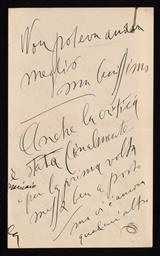 Non poteva andar
meglio
ma benissimo
Anche la critica
è stata finalmente
per la prima volta
messa ben a posto
ma ci è ancora
qualcun'altro